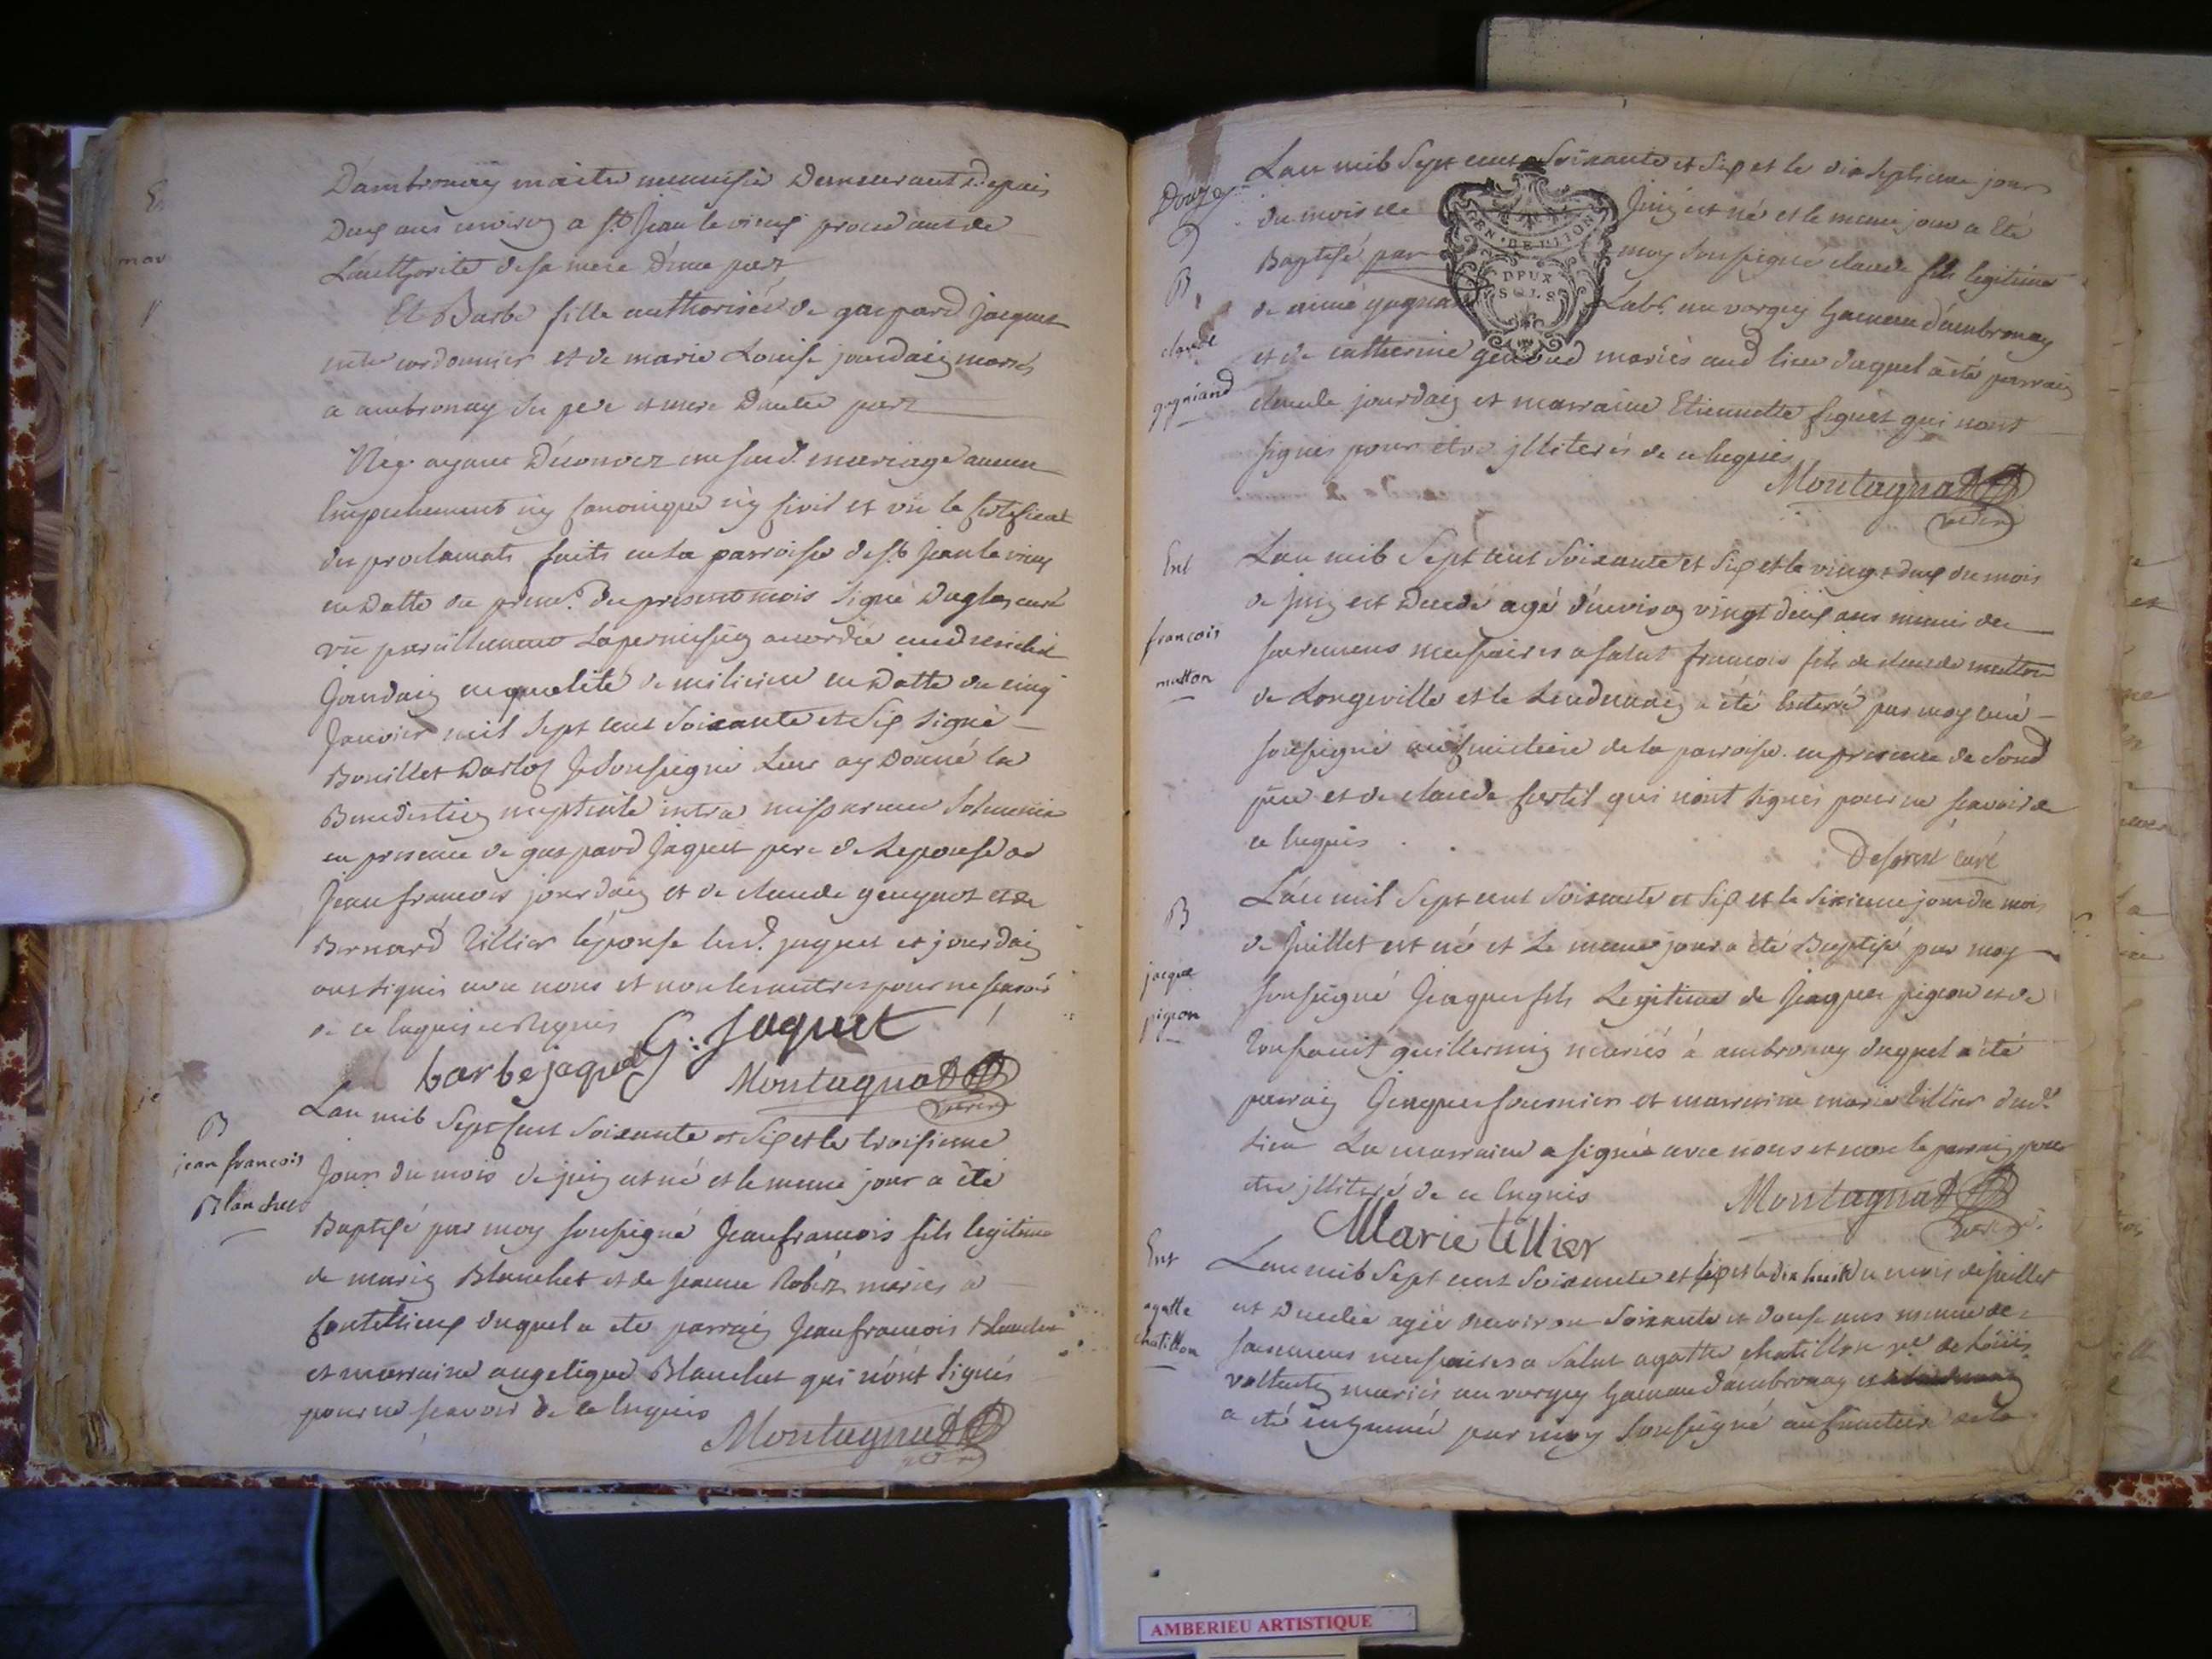 Dambronay maitre menuisier demeurant depuis
Deux ans environ a St Jean le vieux procedant de
Lauthorité de sa mere D'une part
Et Barbe fille authorisée de gaspard jaquet
mtre cordonnier et de marie Louise jourdain mariés
a ambronay ses pere et mere D'autre part
N'y ayant Découvert au sud. mariage aucun
Empechement ny canonique n'y sivil et vu le sertificat
des proclamats faits en la parroisse de St Jean le vieux
en Datte du prem.er du present mois signé curé
vu pareillement La permission accordée aud
Jourdain en qualité de milicien en Datte du cinq
Janvier mil sept cent soixante et six signé
Bouillet Je soussigné Leur ay Donné la
Benediction nuptiale intra missarum solemnia
en presence de gaspard jaquet pere de Lepouse de
Jean francois jourdain et de claude et de
Bernard tillier l'épouse lesd. jaquet et jourdain
ont signés avec nous et non les autres pour ne scavoir
de ce enquis et Requis G: Jaquet
barbe jaquet
Montagnat
vicaire
B
jean francois
Blanchet
Lan mil sept cent soixante et six et le troisieme
Jour du mois de juin est né et le meme jour a été
Baptisé par moy soussigné Jean francois fils legitime
de marin Blanchet et de jeanne Robin mariés a
duquel a été parrain Jean francois Blanchet
et marraine angelique Blanchet qui n'ont signés
pour ne scavoir de ce Enquis
Montagnat
vicaire
Douze
B
claude
gagniand
Lan mil sept cent soixante et six et le dix septieme jour
du mois de Juin est né et le meme jour a été
Baptisé par moy soussigné claude fils legitime
de aimé Labr. au vorgey hameau d'ambronay
et de catherine mariés aud lieu duquel a été parrain
claude jourdain et marraine Etiennette figuet qui n'ont
signés pour etre jlliterés de ce Enquis
Montagnat
vicaire
GEN · DE DIION
DEUX
SOLS
Ent
francois
mutton
Lan mil sept cent soixante et six et le vingt deux du mois
de juin est decedé agé d'environ vingt deux ans muni des
sacremens necessaires a salut francois fils de claude mutton
de Longeville et le Lendemain a été Enterré par moy curé
soussigné au simetiere de la parroisse en presence de sond
pere et de claude qui n'ont signés pour ne scavoir de
ce Enquis
curé
B
jacque
pigeon
Lan mil sept cent soixante et six et le sixieme jour du mois
de Juillet est né et Le meme jour a été Baptisé par moy
soussigné Jacques fils Legitime de Jacques pigeon et de
guillermin mariés à ambronay duquel a été
parrain Jacques fournier et marraine marie tillier dud.
Lieu La marraine a signée avec nous et non le parrain pour
etre jlliteré de ce Enquis
Montagnat
vicaire
Marie tillier
Ent
agatte
chatillon
Lan mil sept cent soixante et six et le dix huit du mois de juillet
est decedée agée denviron soixante et douse ans munie des
sacremens necessaires a salut agatte chatillon ve de Louis
mariés au vorgey hameau d'ambronay et
a été inhumée par moy soussigné au simetiere de la
AMBERIEU ARTISTIQUE